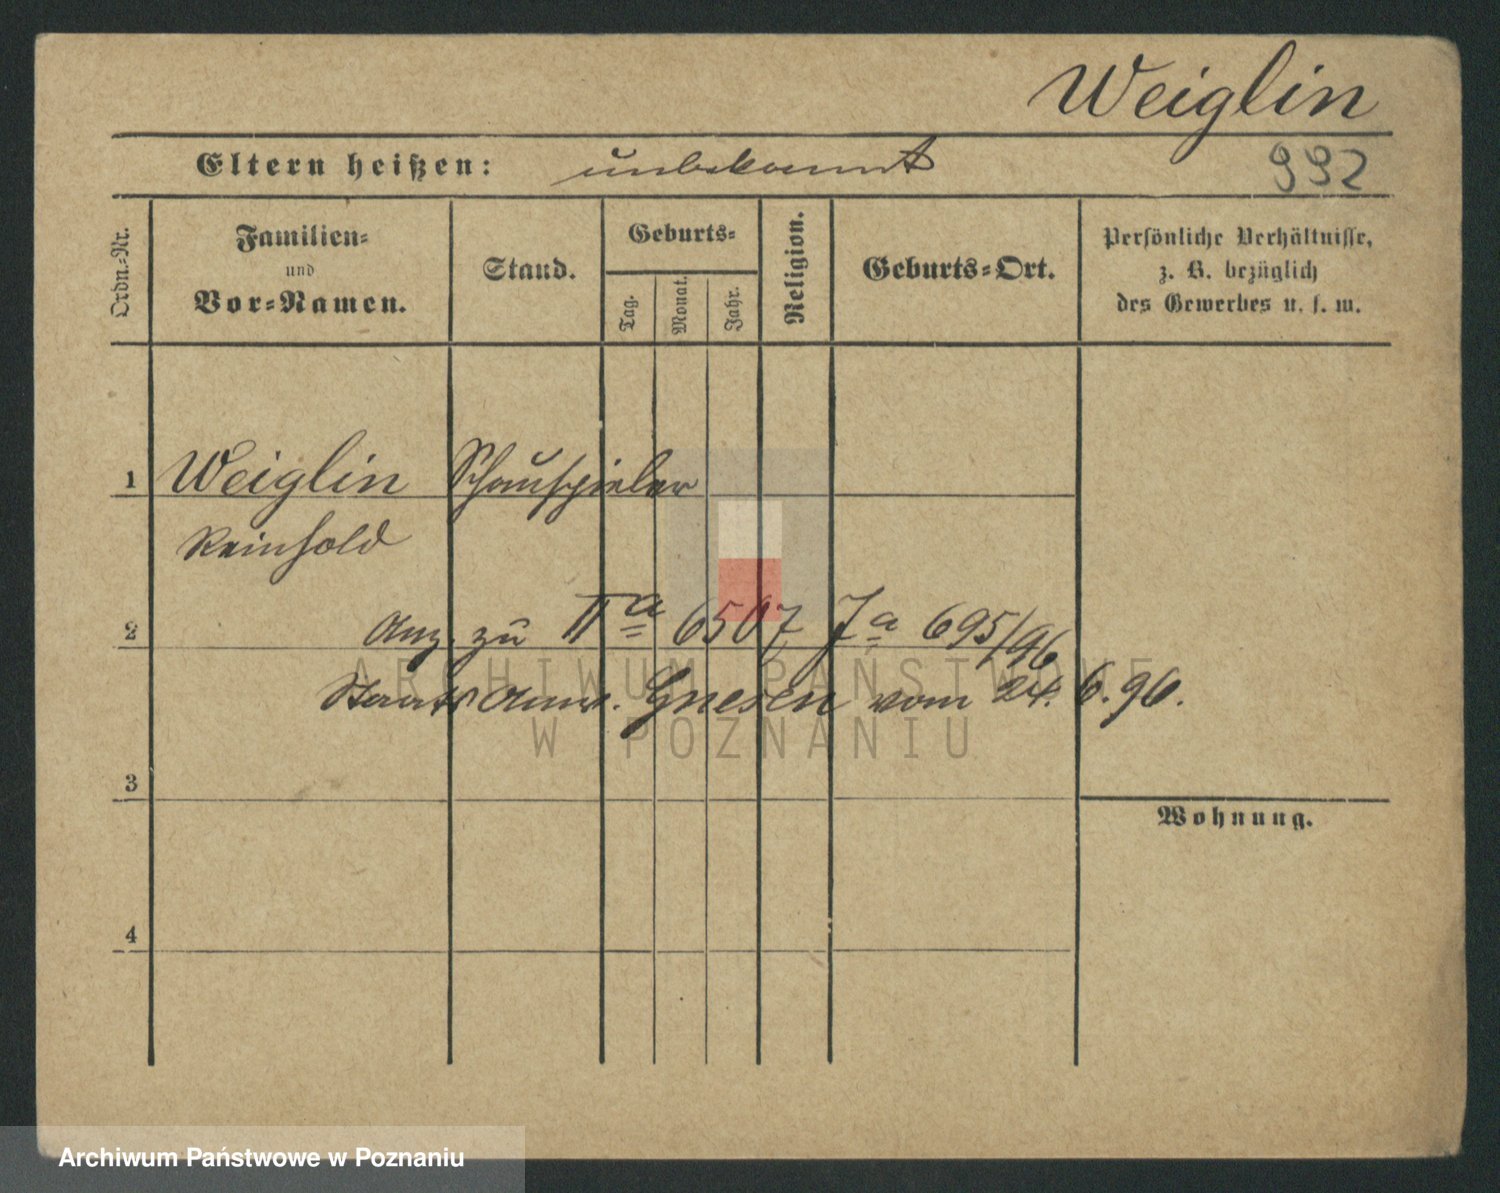 Weiglin
Eltern heißen: unbekannt 992
Ordn.-Nr.
Familien-
und
Vor-Namen.
Stand.
Geburts-
Tag.
Monat.
Jahr.
Religion.
Geburts-Ort.
Persönliche Verhältnisse,
z. B. bezüglich
des Gewerbes u. s. w.
1 Weiglin Schauspieler
Reinhold
2 Anz. zu IIa 6507 Ja 695/96
Staats Anw. Gnesen vom 24. 6. 96.
3
Wohnung.
4
ARCHIWUM PAŃSTWOWE
W POZNANIU
Archiwum Państwowe w Poznaniu